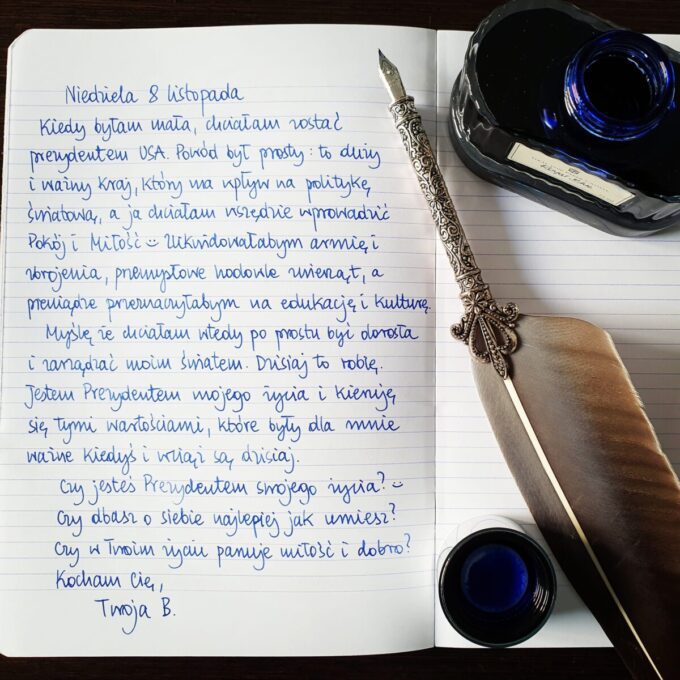 Niedziela 8 listopada
Kiedy byłam mała, chciałam zostać
prezydentem USA. Powód był prosty: to duży
i ważny kraj, który ma wpływ na politykę
światową, a ja chciałam wszędzie wprowadzić
Pokój i Miłość :) Zlikwidowałabym armię i
zbrojenia, przemysłowe hodowle zwierząt, a
pieniądze przeznaczyłabym na edukację i kulturę.
Myślę że chciałam wtedy po prostu być dorosła
i zarządzać moim światem. Dzisiaj to robię.
Jestem Prezydentem mojego życia i kieruję
się tymi wartościami, które były dla mnie
ważne kiedyś i wciąż są dzisiaj.
Czy jesteś Prezydentem swojego życia? :)
Czy dbasz o siebie najlepiej jak umiesz?
Czy w Twoim życiu panuje miłość i dobro?
Kocham Cię,
Twoja B.